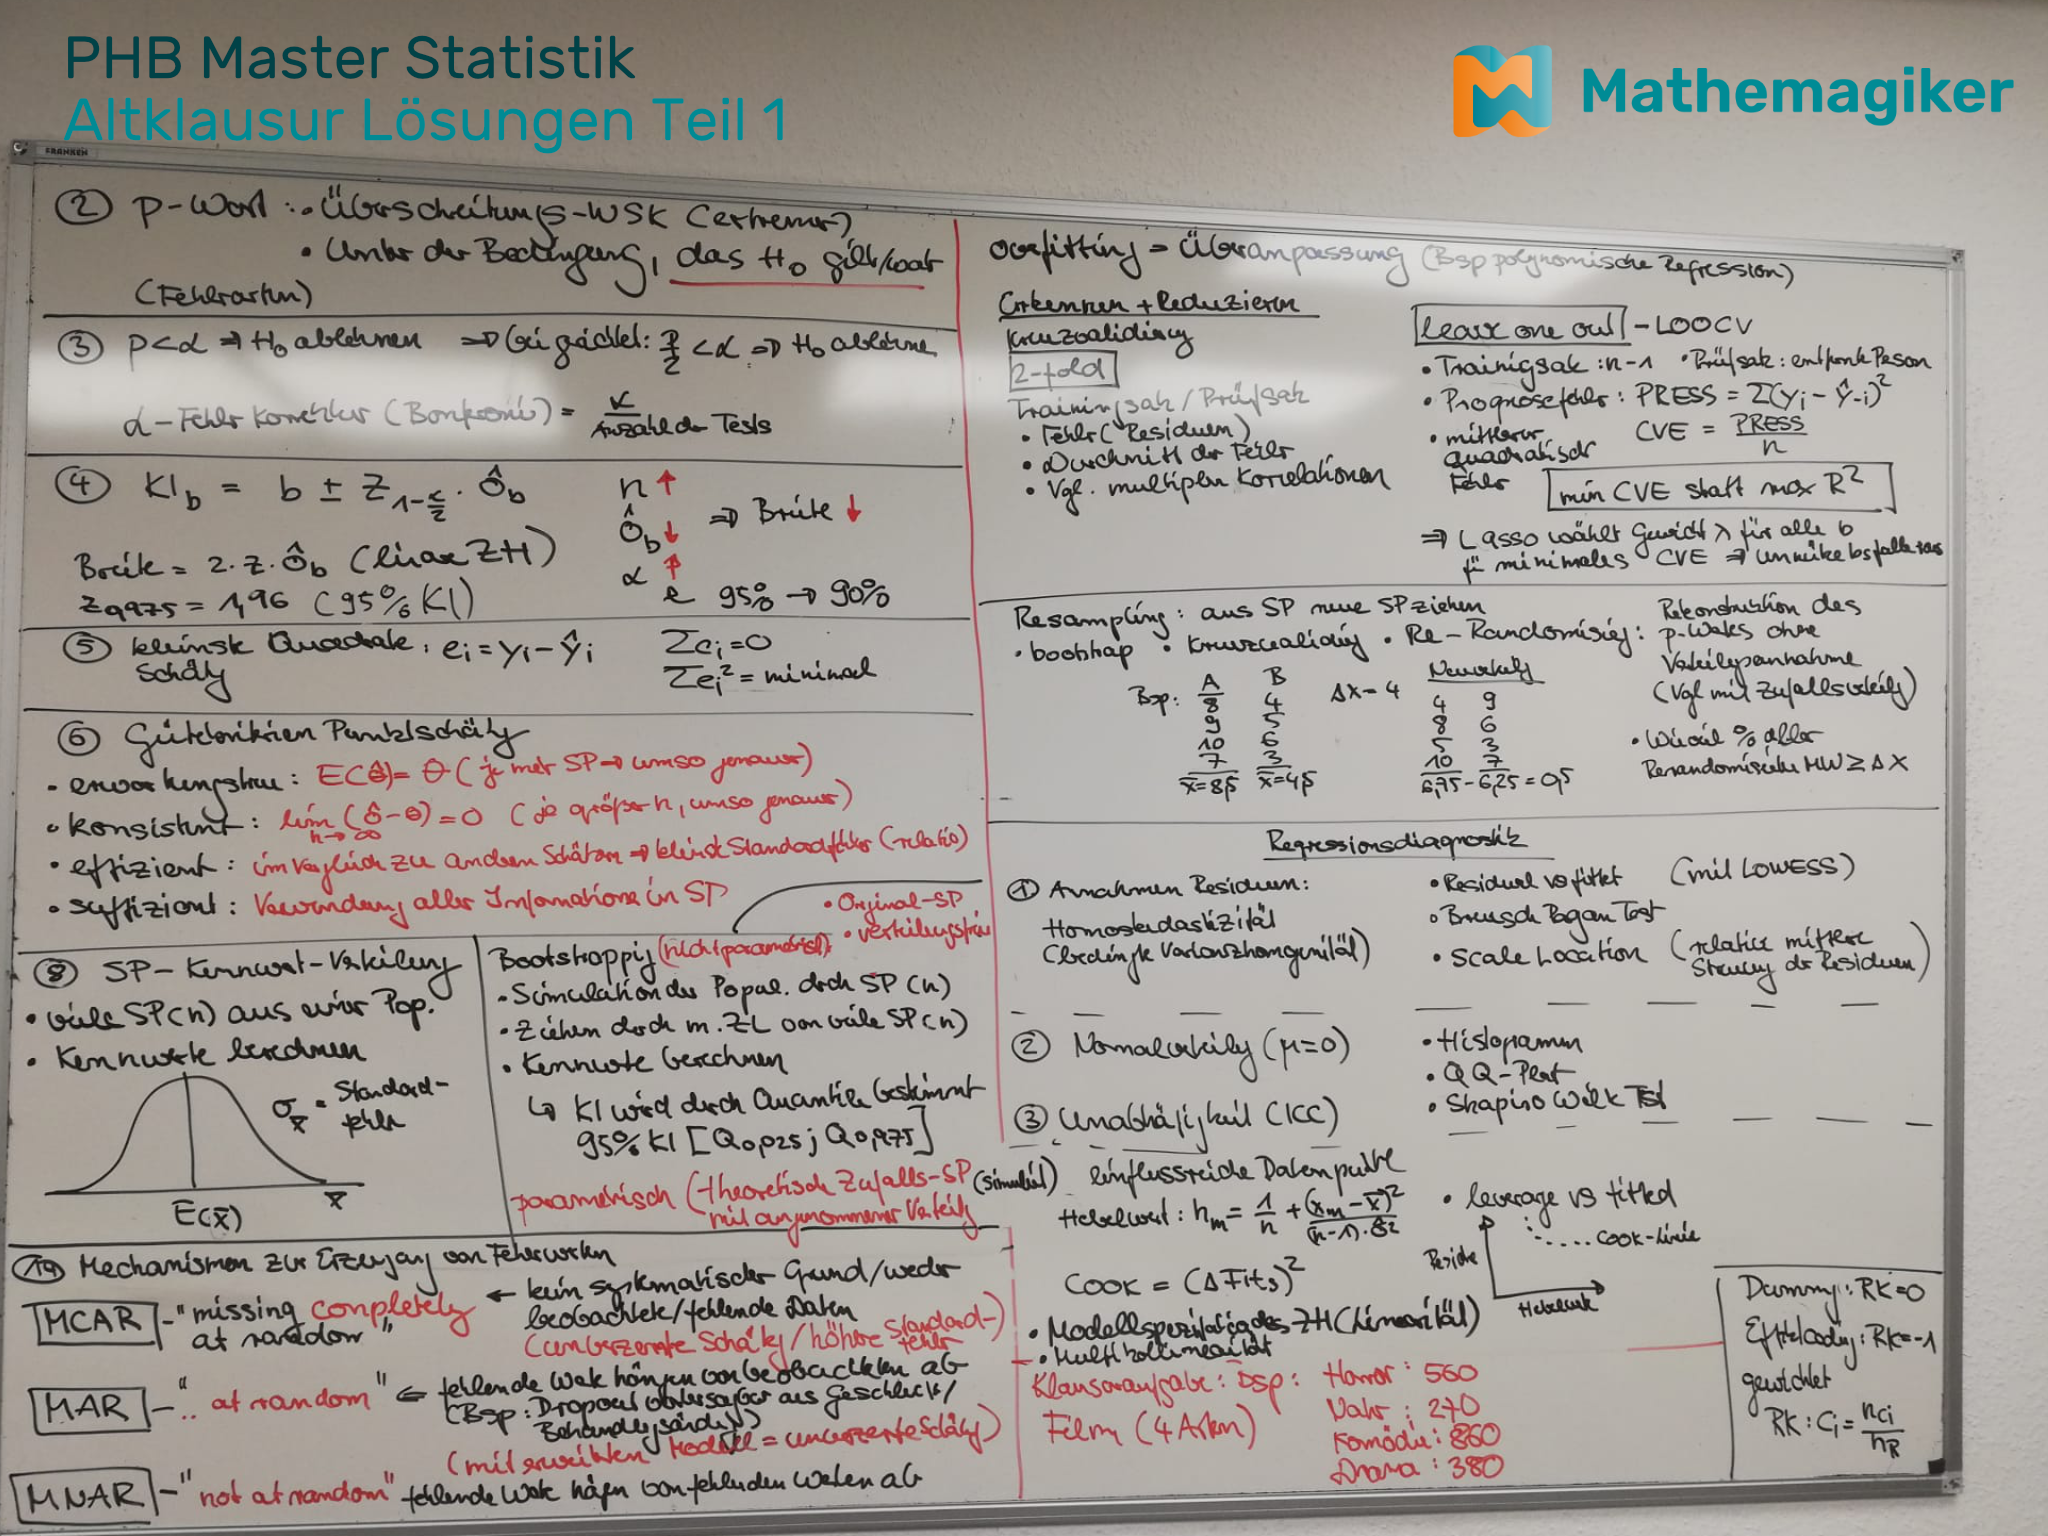 PHB Master Statistik
Altklausur Lösungen Teil 1
Mathemagiker
FRANKEN
② p-Wert : • Überschreitungs-WSK (extremer)
• Unter der Bedingung, das H₀ gilt/wahr
(Fehlerarten)
③ p<α ⇒ H₀ ablehnen ⇒ bei gerichtet: p/2 < α ⇒ H₀ ablehnen
α-Fehler Korrektur (Bonferroni) = α / Anzahl der Tests
④ KI_b = b ± Z_{1-α/2} · σ̂_b
n ↑
σ̂_b ↓ ⇒ Breite ↓
α ↑
95% → 90%
Breite = 2·z·σ̂_b (linear ZH)
z₀,₉₇₅ = 1,96 (95% KI)
⑤ kleinste Quadrate : e_i = y_i - ŷ_i Σe_i = 0
Schätzg Σe_i² = minimal
⑥ Gütekriterien Punktschätzg
• erwartungstreu : E(θ̂) = θ (je mehr SP → umso genauer)
• konsistent : lim n→∞ (θ̂-θ) = 0 (je größer n, umso genauer)
• effizient : im Vergleich zu anderen Schätzern ⇒ kleinster Standardfehler (relativ)
• suffizient : Verwendung aller Informationen in SP
⑧ SP-Kennwert-Verteilung
• viele SP(n) aus einer Pop.
• Kennwerte berechnen
σ_x̄ = Standard-
fehler
E(x̄) x̄
Bootstrapping (nicht parametrisch)
• Orginal-SP
• verteilungsfrei
• Simulation der Popul. durch SP (n)
• Ziehen durch m. ZL von viele SP(n)
• Kennwerte berechnen
↳ KI wird durch Quantile bestimmt
95% KI [Q₀,₀₂₅ ; Q₀,₉₇₅]
parametrisch (theoretisch Zufalls-SP (simuliert)
mit angenommener Verteilg
⑲ Mechanismen zur Erzeugung von Fehlwerten
MCAR - "missing completely
at random"
← kein systematischer Grund/weder
beobachtete/fehlende Daten
(unverzerrte Schätzg/höhere Standard-
fehler)
MAR - ".. at random" ⇐ fehlende Werte hängen von beobachteten ab
(Bsp: Dropout vorhersagbar aus Geschlecht/
Behandlungsänderg)
(mit erweitertem Modell = unverzerrte Schätzg)
MNAR - "not at random" fehlende Werte hängen von fehlenden Werten ab
overfitting = Überanpassung (Bsp polynomische Regression)
Erkennen + Reduzieren
Kreuzvalidierung
2-fold
Trainingsdat / Prüfdat
• Fehler (Residuen)
• Durchnitt der Fehler
• Vgl. multiplen Korrelationen
leave one out - LOOCV
• Trainigsdat : n-1 • Prüfdat : entfernte Person
• Prognosefehler : PRESS = Σ(y_i - ŷ_-i)²
• mittlerer
quadratischer
Fehler
CVE = PRESS / n
min CVE statt max R²
⇒ Lasso wählt Gewicht λ für alle b
für minimales CVE ⇒ unnütze bs fallen raus
Resampling : aus SP neue SP ziehen
• bootstrap • Kreuzvalidierg • Re-Randomisierg :
Rekonstruktion des
p-Werts ohne
Verteilgsannahme
(Vgl mit Zufallsverteilg)
• Wieviel % aller
Rerandomisierten MW ≥ Δx
Bsp: A B Δx = 4 Neuverteilg
8 4 4 9
9 5 8 6
10 6 5 3
7 3 10 7
x̄=8,5 x̄=4,5 6,75 - 6,25 = 0,5
Regressionsdiagnostik
① Annahmen Residuen:
Homoskedastizität
(bedingte Varianzhomogenität)
• Residual vs fitted (mit LOWESS)
• Breusch Pagan Test
• Scale Location (relative mittlere
Streuung der Residuen)
② Normalverteilg (μ=0)
• Histogramm
• QQ-Plot
• Shapiro Wilk Test
③ Unabhängigkeit (ICC)
einflussreiche Datenpunkte
Hebelwert : h_m = 1/n + (x_m - x̄)² / (n-1)·s²
• leverage vs fitted
Cook-Linie
Residuen
Hebelwerte
COOK = (ΔFits)²
• Modellspezifikation des ZH (Linearität)
• Multikollinearität
Klausuraufgabe : Bsp :
Filme (4 Arten)
Horror : 560
Natur : 270
Komödie : 860
Drama : 380
Dummy : RK=0
Effektcodierg : RK=-1
gewichtet
RK : C_i = n_ci / n_R